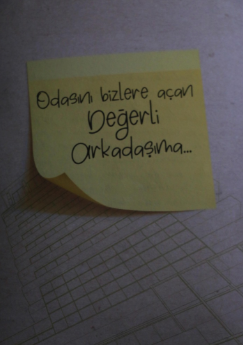 Odasını bizlere açan
Değerli
arkadaşıma...